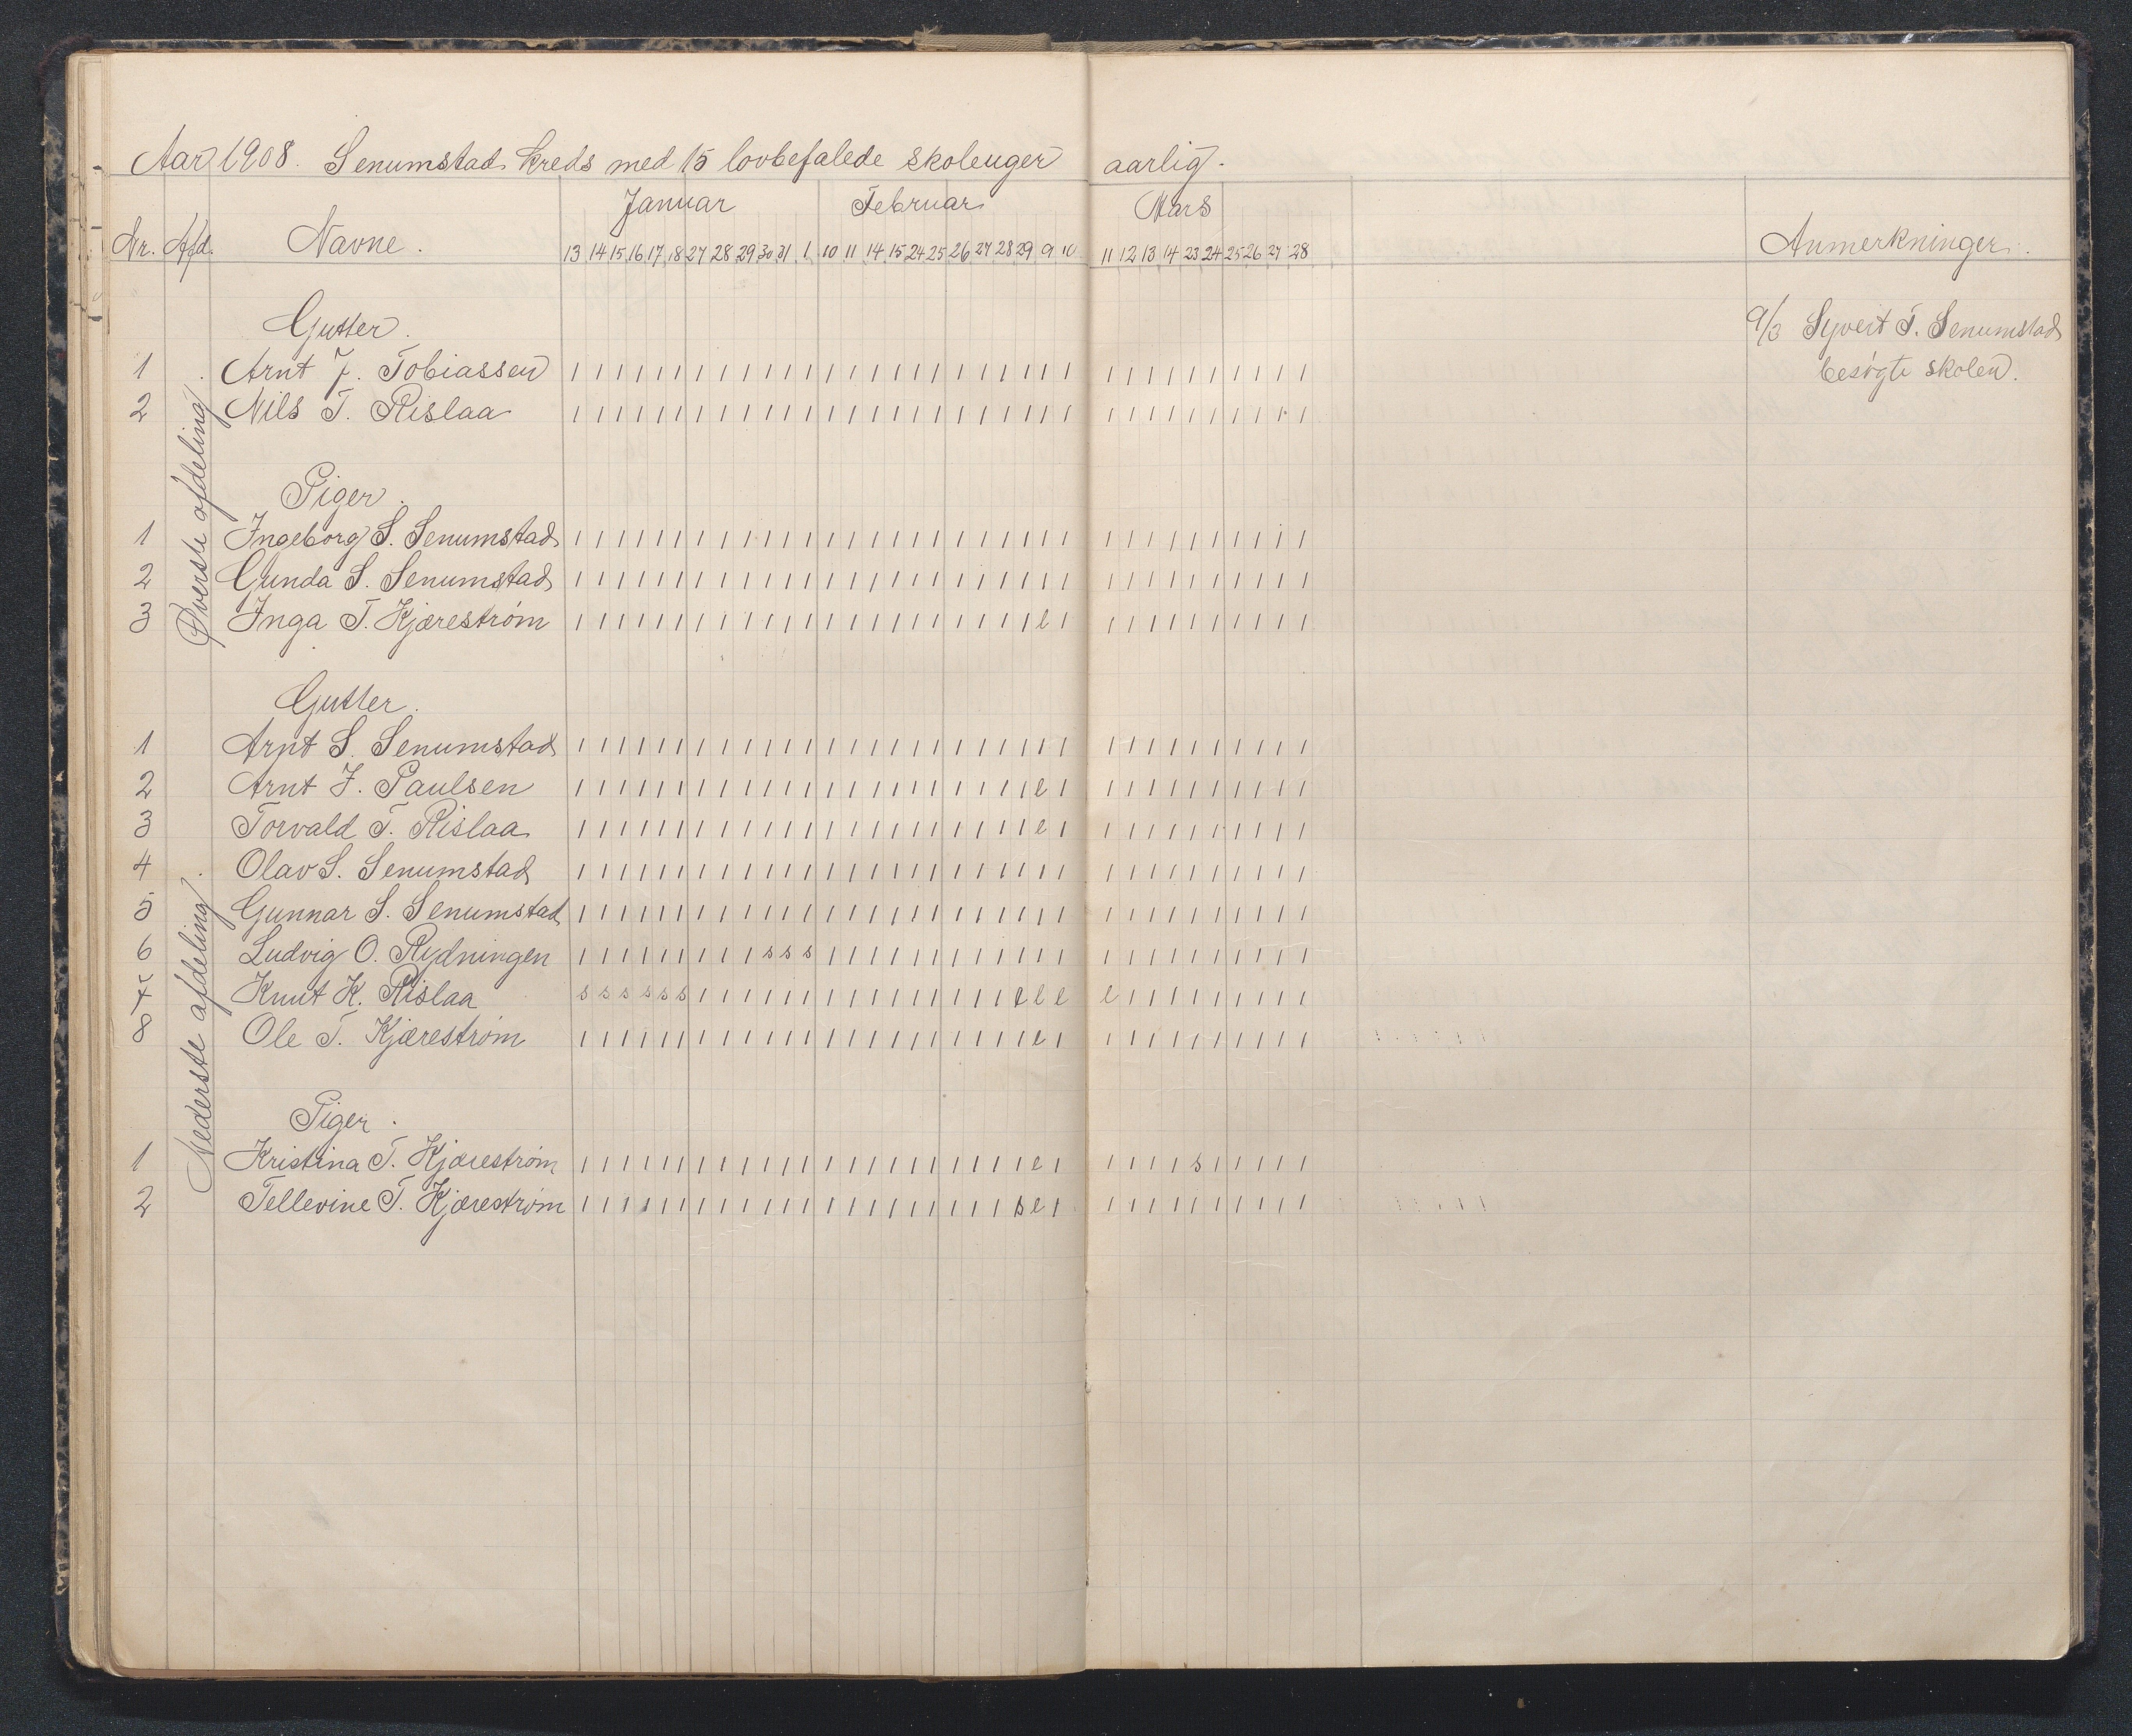 Aar 1908. Senumstad kreds med 15 lovbefalede skoleuger aarlig.
Januar Februar Mars
Nr. Afd. Navne. 13 14 15 16 17 18 27 28 29 30 31 1 10 11 14 15 24 25 26 27 28 29 9 10 11 12 13 14 23 24 25 26 27 28 Anmerkninger.
Øverste afdeling
Gutter. 9/3 Syvert T. Senumstad
1 Arnt J. Tobiassen 1 1 1 1 1 1 1 1 1 1 1 1 1 1 1 1 1 1 1 1 1 1 1 1 1 1 1 1 1 1 1 1 1 1 besøgte skolen.
2 Nils T. Rislaa 1 1 1 1 1 1 1 1 1 1 1 1 1 1 1 1 1 1 1 1 1 1 1 1 1 1 1 1 1 1 1 1 1 1
Piger.
1 Ingeborg S. Senumstad 1 1 1 1 1 1 1 1 1 1 1 1 1 1 1 1 1 1 1 1 1 1 1 1 1 1 1 1 1 1 1 1 1 1
2 Gunda S. Senumstad 1 1 1 1 1 1 1 1 1 1 1 1 1 1 1 1 1 1 1 1 1 1 1 1 1 1 1 1 1 1 1 1 1 1
3 Inga T. Kjærestrøm 1 1 1 1 1 1 1 1 1 1 1 1 1 1 1 1 1 1 1 1 1 1 l 1 1 1 1 1 1 1 1 1 1 1
Nederste afdeling
Gutter.
1 Arnt S. Senumstad 1 1 1 1 1 1 1 1 1 1 1 1 1 1 1 1 1 1 1 1 1 1 1 1 1 1 1 1 1 1 1 1 1 1
2 Arnt J. Paulsen 1 1 1 1 1 1 1 1 1 1 1 1 1 1 1 1 1 1 1 1 1 1 l 1 1 1 1 1 1 1 1 1 1 1
3 Torvald T. Rislaa 1 1 1 1 1 1 1 1 1 1 1 1 1 1 1 1 1 1 1 1 1 1 l 1 1 1 1 1 1 1 1 1 1 1
4 Olav S. Senumstad 1 1 1 1 1 1 1 1 1 1 1 1 1 1 1 1 1 1 1 1 1 1 1 1 1 1 1 1 1 1 1 1 1 1
5 Gunnar S. Senumstad 1 1 1 1 1 1 1 1 1 1 1 1 1 1 1 1 1 1 1 1 1 1 1 1 1 1 1 1 1 1 1 1 1 1
6 Ludvig O. Rydningen 1 1 1 1 1 1 1 1 1 s s s 1 1 1 1 1 1 1 1 1 1 1 1 1 1 1 1 1 1 1 1 1 1
7 Knut K. Rislaa s s s s s s 1 1 1 1 1 1 1 1 1 1 1 1 1 1 1 l l l l 1 1 1 1 1 1 1 1 1
8 Ole T. Kjærestrøm 1 1 1 1 1 1 1 1 1 1 1 1 1 1 1 1 1 1 1 1 1 1 l 1 1 1 1 1 1 1 1 1 1 1
Piger.
1 Kristina T. Kjærestrøm 1 1 1 1 1 1 1 1 1 1 1 1 1 1 1 1 1 1 1 1 1 1 l 1 1 1 1 1 s 1 1 1 1 1
2 Tellevine T. Kjærestrøm 1 1 1 1 1 1 1 1 1 1 1 1 1 1 1 1 1 1 1 1 1 s l 1 1 1 1 1 1 1 1 1 1 1